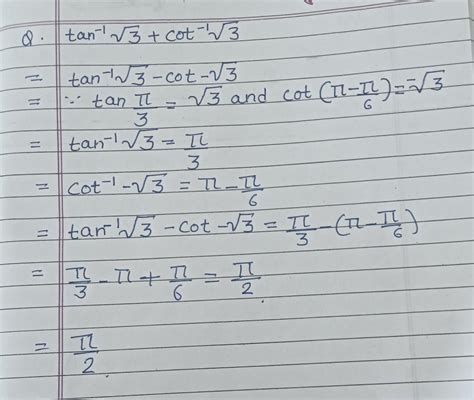 Q. tan⁻¹√3 + cot⁻¹√3
= tan⁻¹√3 - cot-√3
= ∵ tan π/3 = √3 and cot (π-π/6) = -√3
= tan⁻¹√3 = π/3
= cot⁻¹-√3 = π-π/6
= tan⁻¹√3 - cot-√3 = π/3 - (π-π/6)
= π/3 - π + π/6 = π/2.
= π/2.